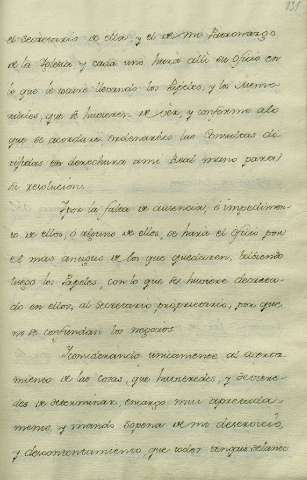 el Secretario de ella, y el de mi Patronazgo
de la Iglesia y cada uno hará allí su Oficio en
lo que le tocare llevando los Papeles, y los Memo-
riales, que se hubieren de ver, y conforme a lo
que se acordare ordenareis las Consultas di-
rigidas en derechura a mi Real mano para
la resolucion.
Y por la falta de ausencia, ó impedimen-
to de ellos, ó alguno de ellos, se hará el Oficio por
el mas antiguo de los que quedaren,
luego los Papeles, con lo que se hubiere decreta-
do en ellos, al Secretario proprietario, por que
no se confundan los negocios.
Y considerando unicamente al
miento de las cosas, que hubieredes, y
des de determinar, encargo mui apretada-
mente, y mando sopena de mi deservicio,
y descontentamiento que todos tengais delante